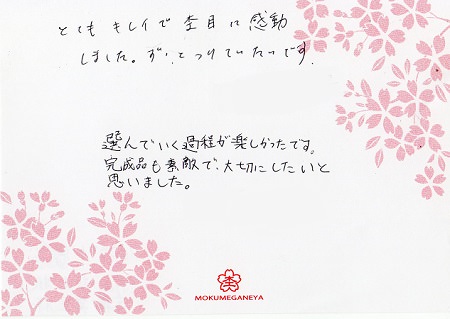 とてもキレイで杢目に感動
しました。ずっとつけていたいです。
選んでいく過程が楽しかったです。
完成品も素敵で、大切にしたいと
思いました。
杢
MOKUMEGANEYA